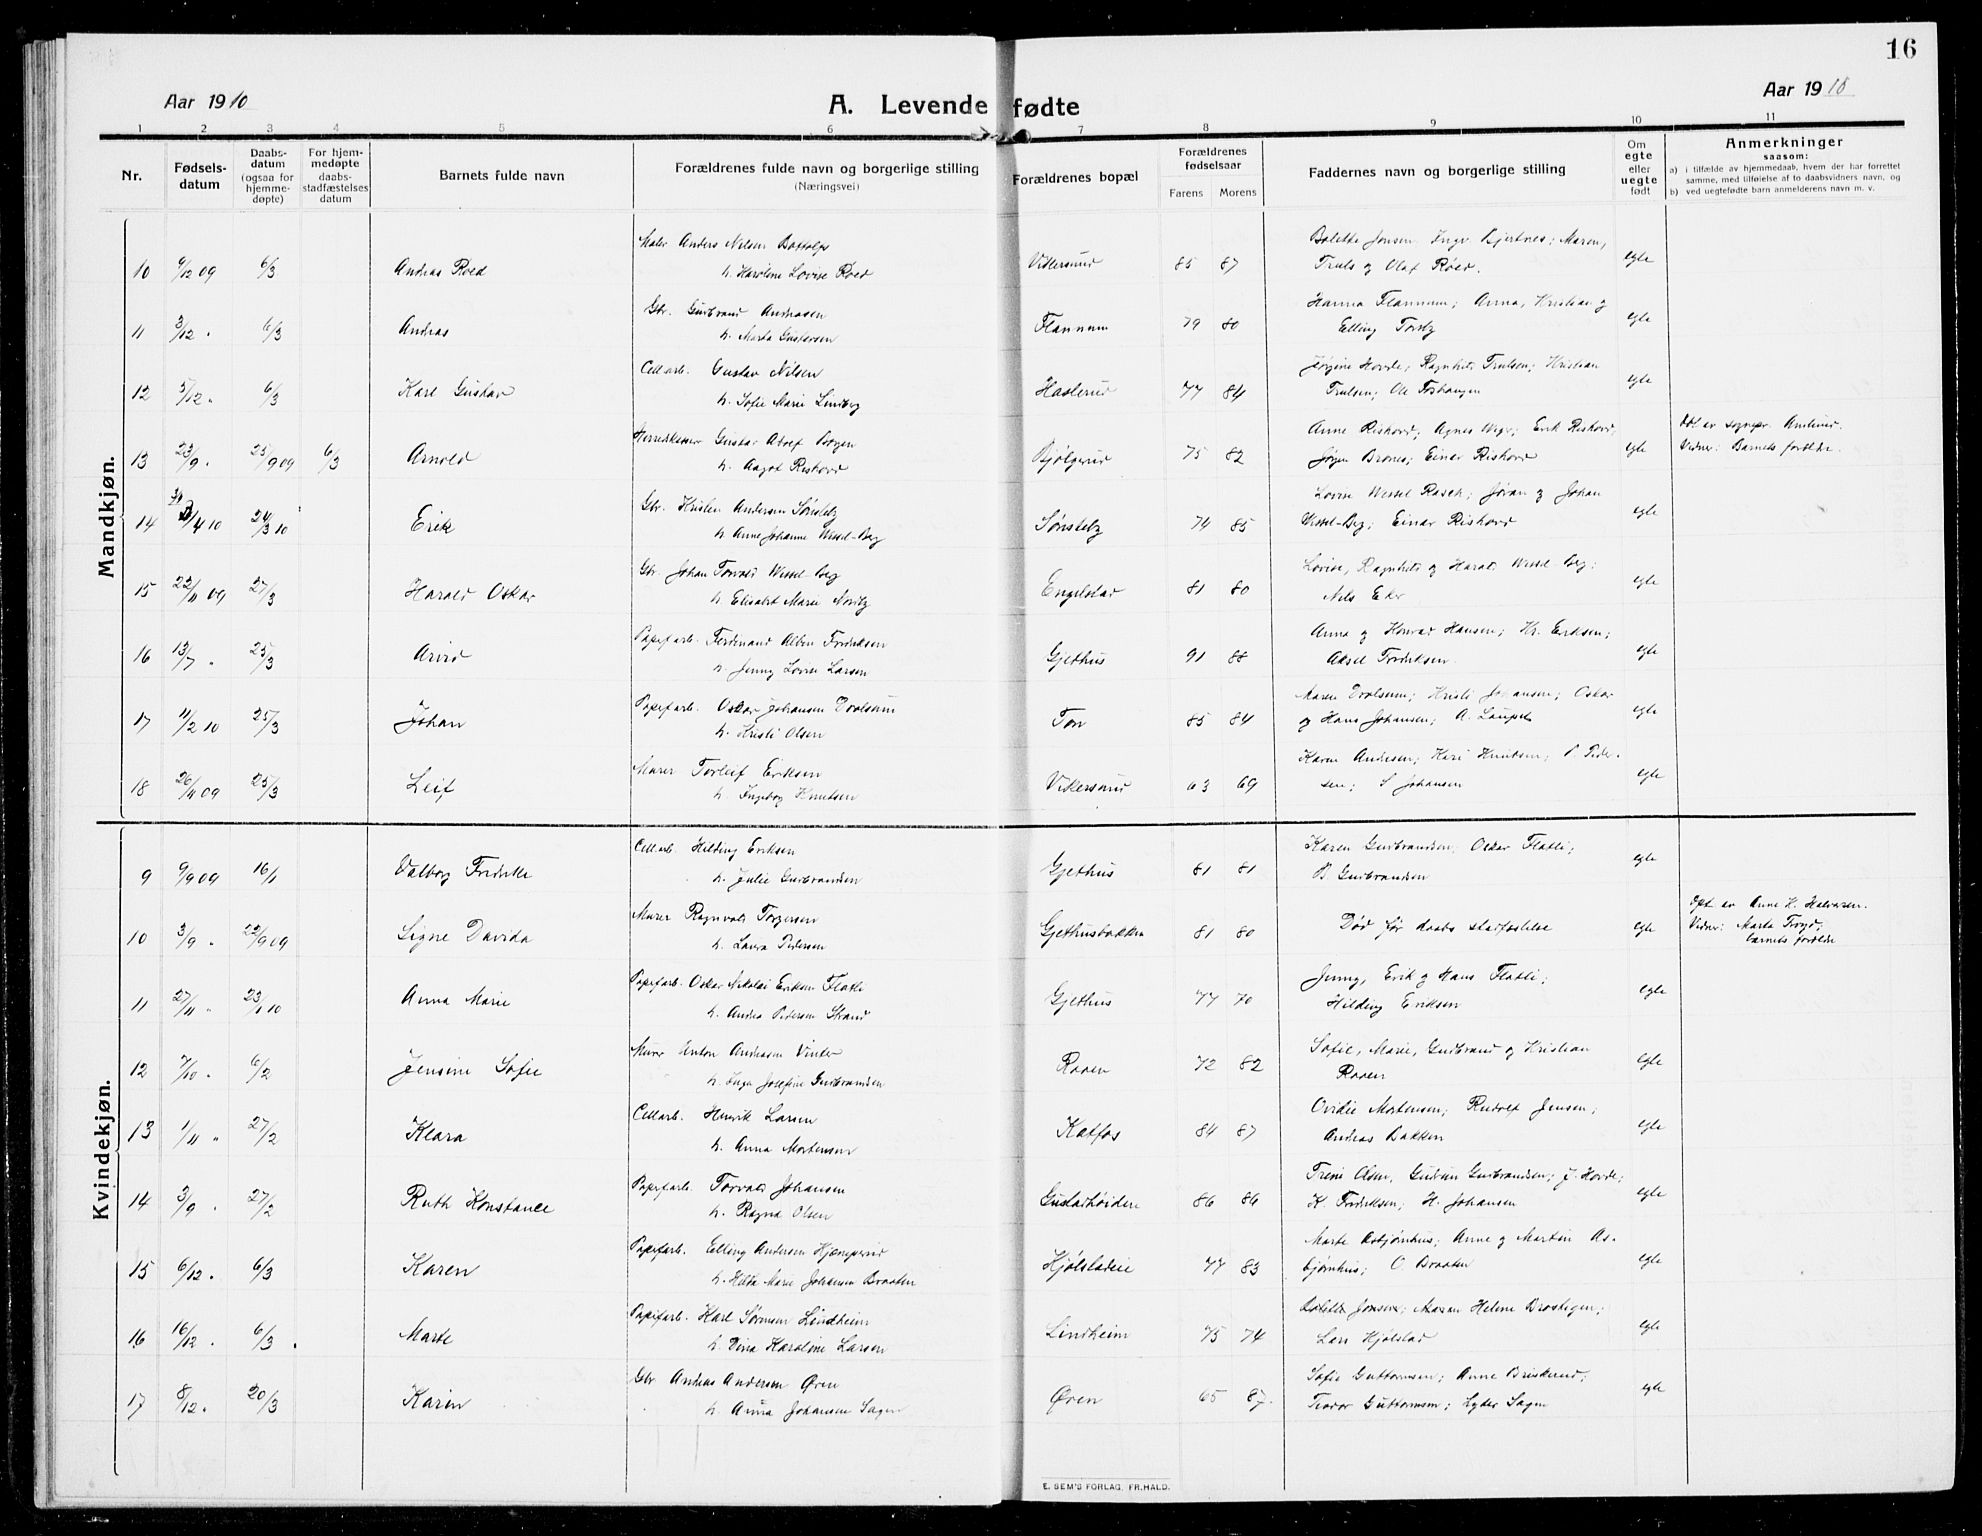 16
Aar 1910
A. Levende fødte
Aar 1910
1 2 3 4 5 6 7 8 9 10 11
Nr.
Fødsels-
datum
Daabs-
datum
(ogsaa for
hjemme-
døpte)
For hjem-
medøpte
daabs-
stadfæstelses
datum
Barnets fulde navn
Forældrenes fulde navn og borgerlige stilling
(Næringsvei)
Forældrenes bopæl
Forældrenes
fødselsaar
Farens Morens
Faddernes navn og borgerlige stilling
Om
egte
eller
uegte
født
Anmerkninger
saasom:
a) i tilfælde av hjemmedaab, hvem der har forrettet
samme, med tilføielse af to daabsvidners navn, og
b) ved uegtefødte barn anmelderens navn m. v.
Mandkjøn.
Maler Anders Nilsen
10 9/12 09 6/3 Andreas Roed h. Karoline Lovise Røed Vikersund 85 87 Truls og Olaf Røed. egte
Gbr. Gudbrand Andreasen Hanna Flannum; Anna, Kristian og
11 3/12 " 6/3 Andreas h. Marta Gustavsen Flannum 79 80 Elling egte
Cell.arb. Gustav Nilsen Jørgine Hovde; Ragnhild Trulsen; Kristian
12 5/12 " 6/3 Karl Gustav h. Sofie Marie Lindberg Haslerud 77 84 Trulsen; Ole egte
Gustav Adolf Anne Riskord; Agnes Erik Riskord,
13 23/9 " 25/9 09 6/3 Arnold h. Aagot Riskord Bjølgerud 75 82 Jørgen Einar Riskord egte Vidner: Barnets forældre.
Gbr. Kristen Andersen Sønsteby Lovise Wessel Jøran og Johan
14 4 10 24/3 10 Erik h. Anne Johanne Wessel-Berg Sønsteby 74 85 Wessel-Berg; Einar Riskord egte
Gbr. Johan Torvald Wessel-Berg Lovise, Ragnhild og Harald Wessel-Berg;
15 22/11 09 27/3 Harald Oskar h. Elisabet Marie Engelstad 81 80 Nils Eker egte
Papirfarb. Ferdinand Albin Fredriksen Anna og Konrad Hansen; Kr. Eriksen;
16 13/7 " 25/3 Arvid h. Jenny Lovise Larsen Gjethus 91 88 Aksel Fredriksen. egte
Papirfarb. Oskar Johansen Maren Kristi Johansen; Oskar
17 11/2 10 25/3 Johan h. Kristi Olsen 85 84 og Hans Johansen; A. egte
Murer Torleif Eriksen Karen Andersen; Kari Knutsen; P. Peder-
18 26/11 09 25/3 Leif h. Ingeborg Knutsen Vikersund 63 69 sen; S Johansen egte
Kvindekjøn.
Cell.arb. Hilding Eriksen Karen Gudbrandsen; Oskar Flatli;
9 9/9 09 16/1 Valborg Fredrikke h. Julie Gudbrandsen Gjethus 81 81 B Gudbrandsen egte
Murer Ragnvald Torgersen av Anne K. Halvorsen.
10 3/9 " 22/9 09 Signe Davida h. Laura Pedersen Gjethusbakken 81 80 Død før daabs stadfæstelse egte Vidner: Marta
barnets forældre
Papirfarb. Oskar Nikolai Eriksen Flatli Jenny, Erik og Hans Flatli;
11 27/11 " 23/1 10 Anna Marie h. Andrea Pedersen Strand Gjethus 77 70 Hilding Eriksen egte
Murer Anton Andreasen Vinter Sofie, Marie, Gudbrand og Kristian
12 7/10 " 6/2 Jensine Sofie h. Inga Josefine Gudbrandsen Raaen 72 82 Raaen egte
Cell.arb. Henrik Larsen Ovidie Mortensen; Rudolf Jensen;
13 1/11 " 27/2 Klara h. Anna Mortensen Katfos 84 87 Andreas Bakken egte
Papirfarb. Torvald Johansen Trine Olsen, Gudrun Gudbrandsen; J. Hovde;
14 3/9 " 27/2 Ruth Konstance h. Ragna Olsen Gustadhøiden 86 86 K. Fredriksen; H. Johansen egte
Papirfarb. Elling Andersen Marte Asbjørnhus; Anne og Martin As-
15 6/12 " 6/3 Karen h. Hilda Marie Johansen Braaten Hjølstadeie 77 83 bjørnhus; O. Braaten egte
Papirfarb. Karl Sørensen Lindheim Bolette Jonsen; Maren Helene
16 16/12 " 6/3 Marte h. Karoline Larsen Lindheim 75 74 Lars Hjølstad egte
Gbr Andreas Andersen Øren Sofie Guttormsen; Anne Briskerud;
17 8/12 " 20/3 Karen h. Anna Johansen Sagen Øren 65 87. Teodor Guttormsen; Lyder Sagen egte
E. SEM'S FORLAG, FR.HALD.